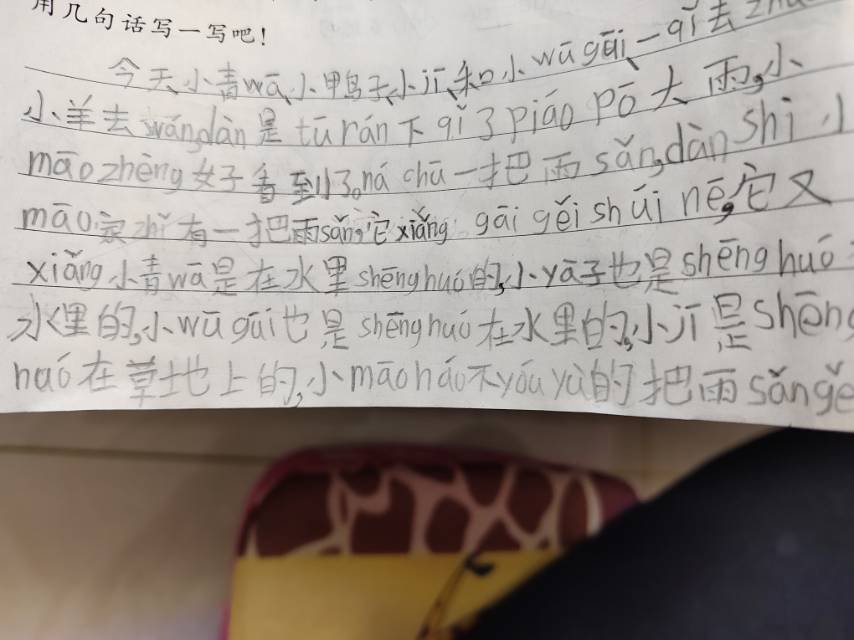 用几句话写一写吧！
今天、小青wā、小鸭子、小jī、和小wū gūi、一qǐ去
小羊去wán,dàn是tū rán下qǐ了piáo pō大雨,小
māo zhèng好看到了。ná chū一把雨sǎn,dàn shì小
māo家zhǐ有一把雨sǎn,它xiǎng gāi gěi shúi nē,它又
xiǎng小青wā是在水里shēng huó的,小yā子也是shēng huó
水里的,小wū gūi也是shēng huó在水里的,小jī是shēng
huó在草地上的,小māo háo不yóu yù的把雨sǎn gě